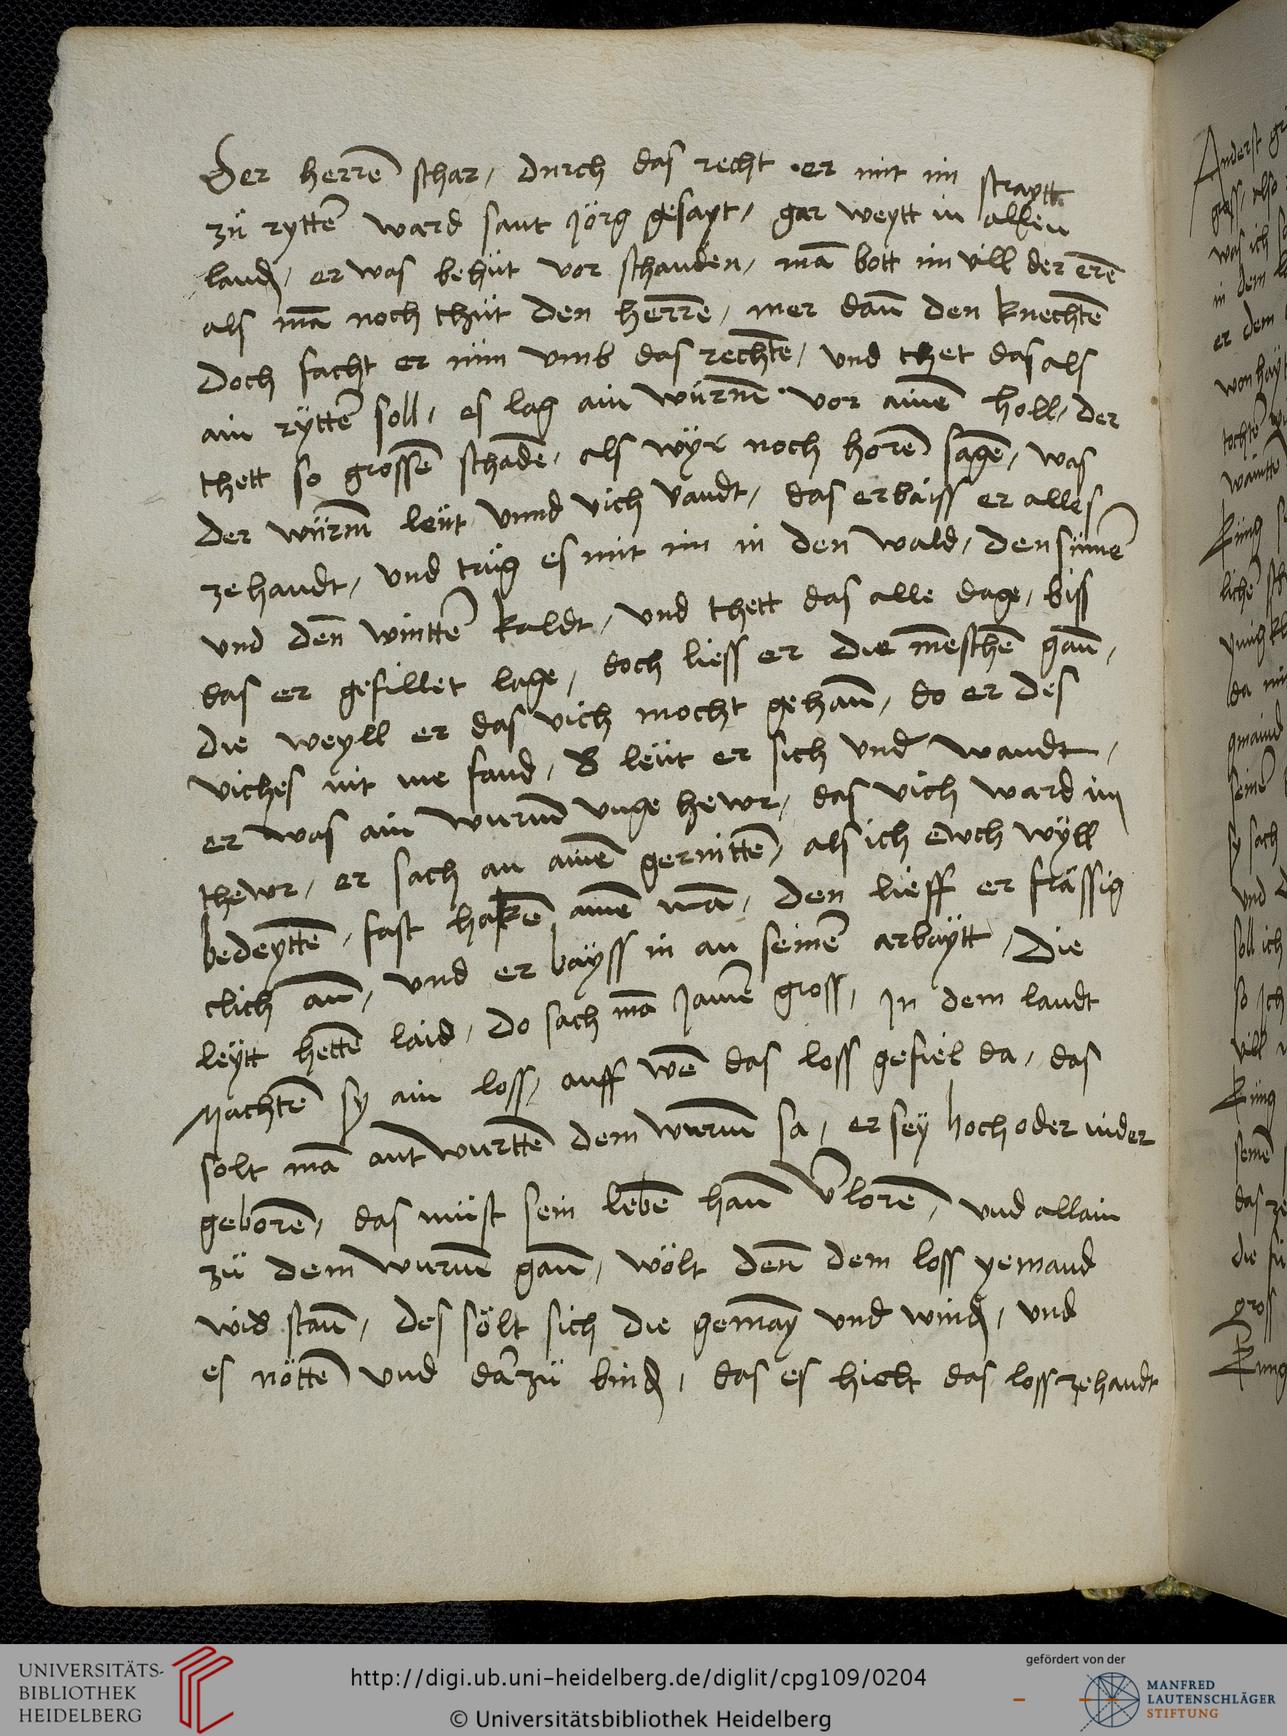 Der herrē schar, durch das recht er mit im straytt
zů rytten ward sant Jörg gesayt, gar weytt in allen
land, er was behüt vor schanden, mā bott im vill der erē
als mā noch thüt den herrē, mer dañ den knechtē
doch facht er nün vmb das rechte, vnd thet das als
ain ryttē soll, es lag ain wurm vor ainē holl, der
thett so grossē schadē, als wyr noch horē sagē, was
der würm leüt vnnd vich vandt, das erbaiss er alles
zehandt, vnd trüg es mit im in den wald, den sümē
vnd den wintter kaldt, vnd thett das alle dage, biss
das er gefillet lage, doch liess er die mēschē gañ,
die weyll er das vich mocht gehañ, do er des
viches nit me fand, d leüt er sich vnd wandt,
er was ain wurm vnge hewr, das vich ward im
thewr, er sach an ainē geruittē, als ich ewch wyll
bedeyttē, fast hakē ainē mā, den lieff er frässig
clich añ, vnd er bayss in an seinē arbaytt, Die
leytt hettē laid, do sach mā Jamē gross, in dem landt
Machtē sy ain loss, auff wē das loss gefiel da, das
solt mā ant wurttē dem wurm sa, er sey hoch oder nider
geborē, das müst sein lebē hañ v̄lorē, vnd allain
zů dem wurm gañ, wölt deñ dem loss yemand
wid stañ, des sölt sich die gemay vnd wind, vnd
es nöttē vnd dar zü bind, das es hielt das loss zehandt
Anderst
was ich
in dem
er dem
tochter
Küng
da
gmaind
seinē
sy sach
vnd
soll ich
so ich
vill
Küng
seinē
das
die
gross
Kung
UNIVERSITÄTS-
BIBLIOTHEK
HEIDELBERG
http://digi.ub.uni-heidelberg.de/diglit/cpg109/0204
© Universitätsbibliothek Heidelberg
gefördert von der
MANFRED
LAUTENSCHLÄGER
STIFTUNG